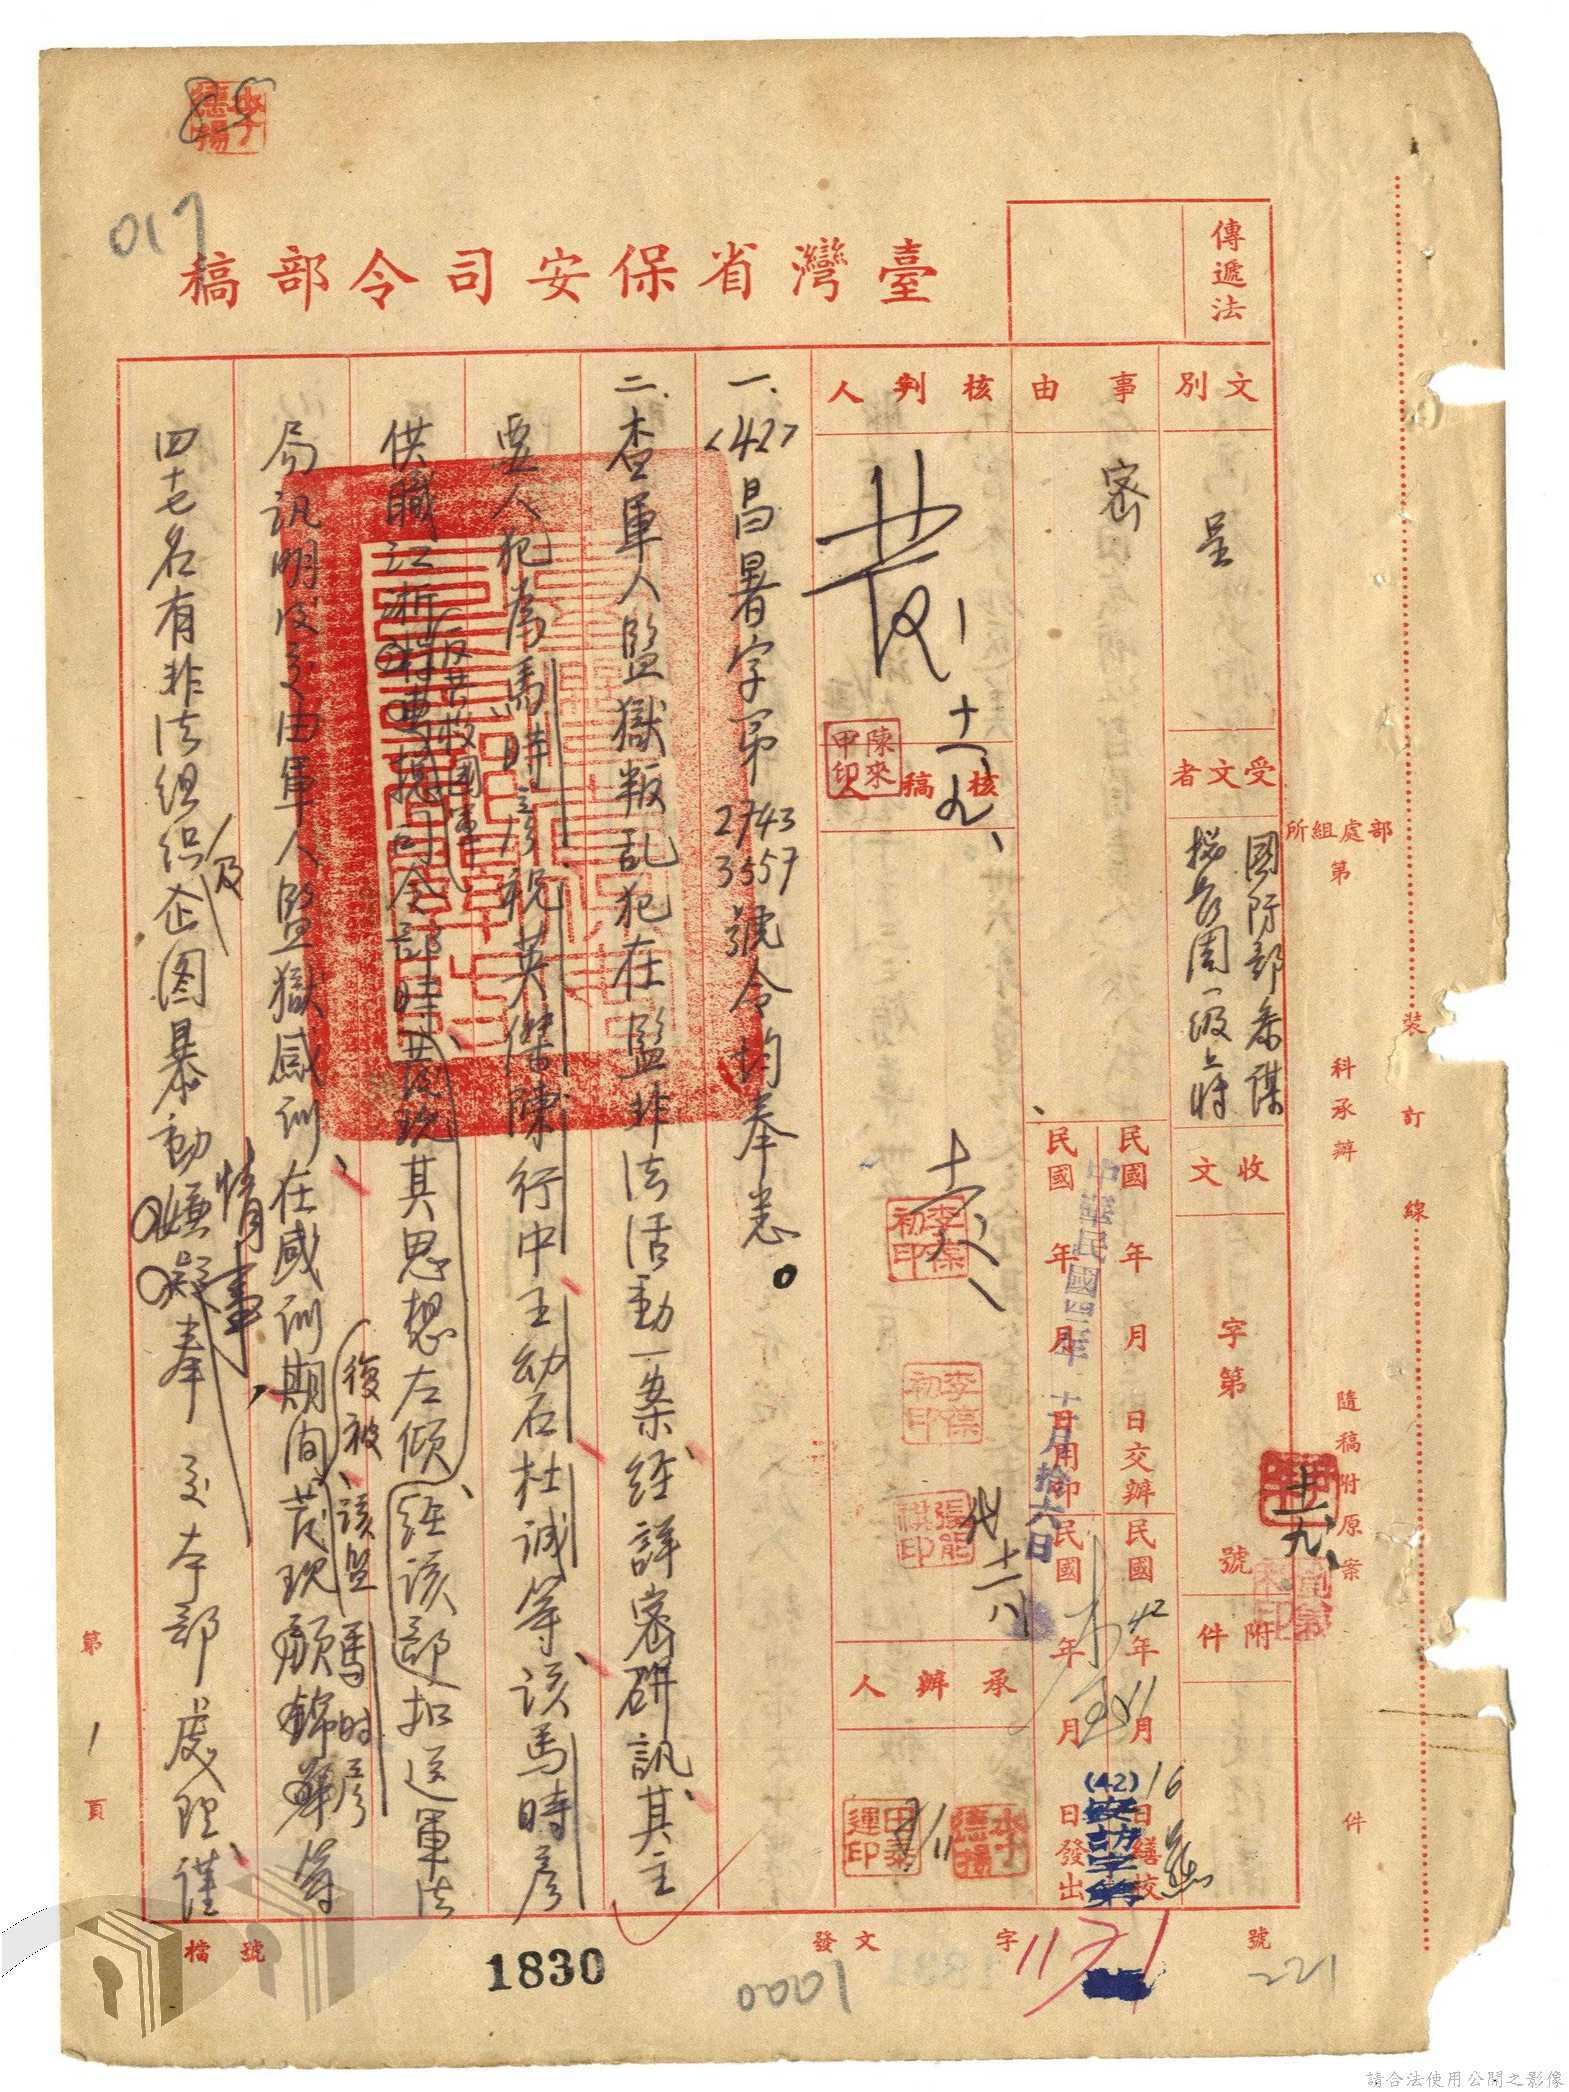 臺灣省保安司令部稿
017
傳遞法
文別
呈
受文者
國防部參謀
總長周一級上將
收文
字第
號
附件
事由
密
民國 年 月 日交辦
民國42年11月16日繕校
民國 年 月 日用印
民國 年 月 日發出
中華民國四二年十一月拾六日
(42)安訪字第
核判人
十一、九、
核稿
陳來甲印
李葆初印
李葆初印
張能祺印
代
十一、八
承辦人
一、<42>昌署字第2743 3557號令均奉悉。
二、查軍人監獄叛乱犯在監非法活動一案、經詳密研訊、其主
要人犯為馬時彥、祝英傑、陳行中、王幼石、杜誠等、該馬時彥
供職江浙反共救國軍總司令部時、發現其思想左傾、經該部扣送軍法
局訊明後交由軍人監獄感訓、在感訓期間、復被該監發現馬時彥等
四十七名有非法組織及企图暴動情事、奉交本部處理、謹
部處組所
第
科承辦
隨稿附原案
件
裝訂線
第
1
頁
檔號
1830
發文
字
1171
號
1000
221
請合法使用公開之影像